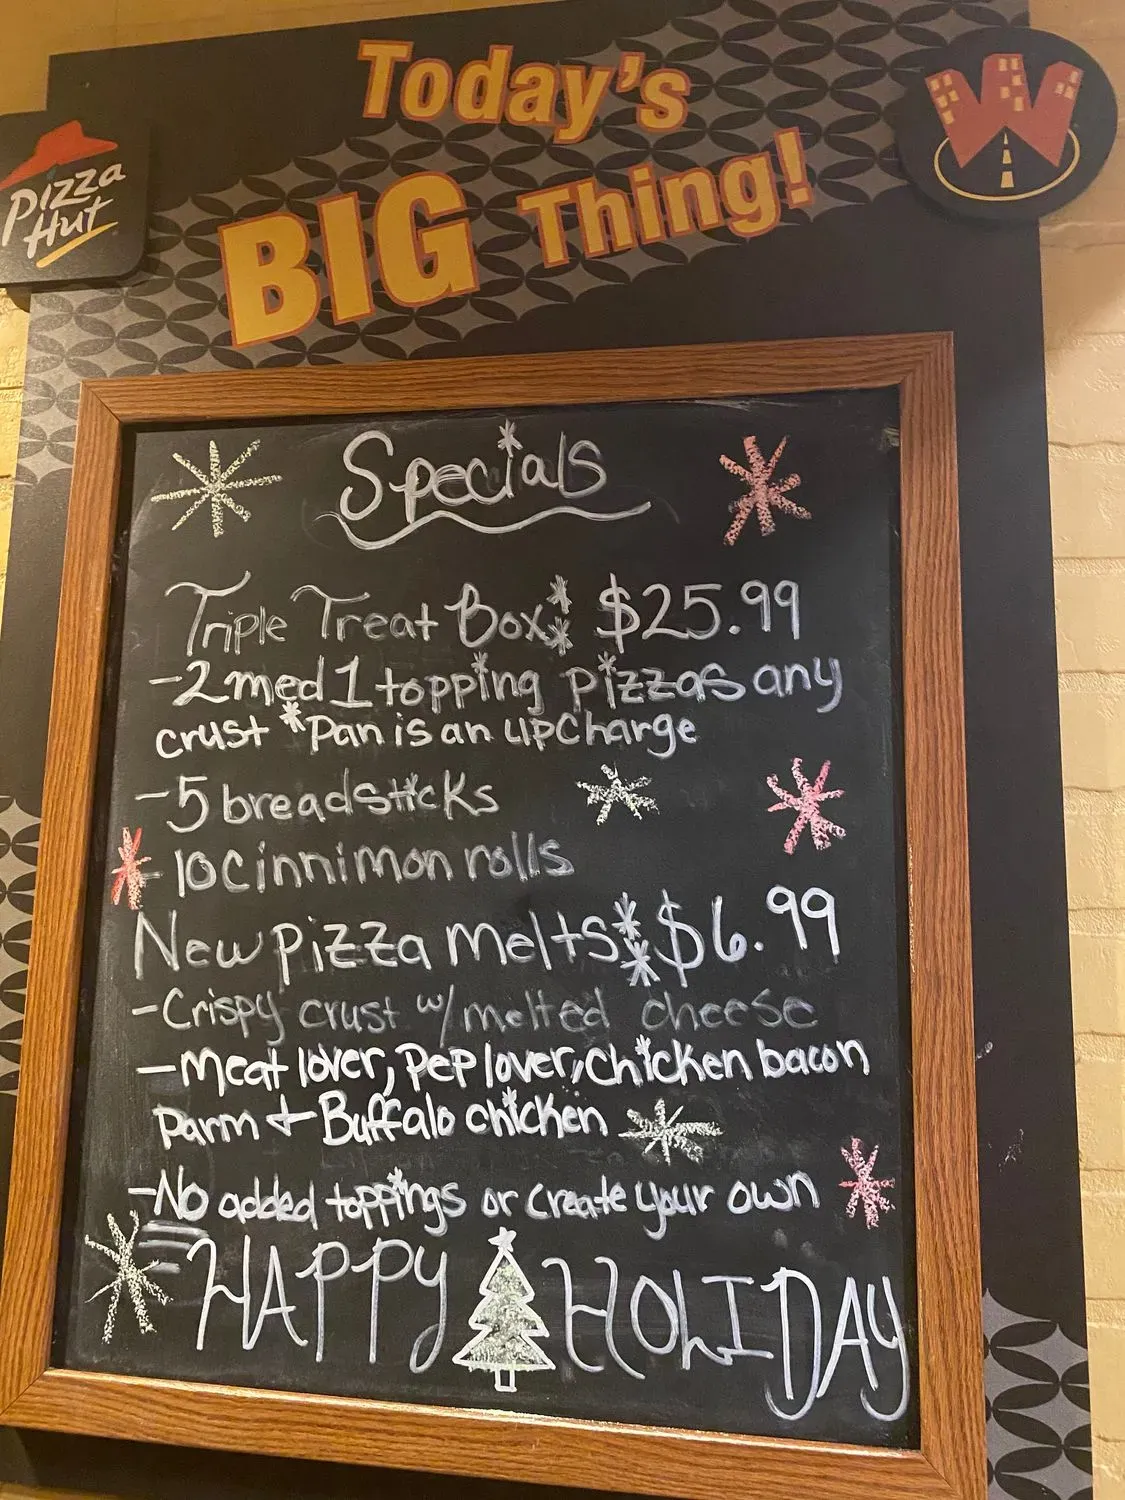 Today's
BIG Thing!
Pizza
Hut
W
Specials
Triple Treat Box $25.99
-2 med 1 topping pizzas any
crust *Pan is an upcharge
-5 breadsticks
-10 cinnimon rolls
New pizza melts $6.99
-Crispy crust w/ melted cheese
-meat lover, pep lover, chicken bacon
parm + Buffalo chicken
-No added toppings or create your own
HAPPY HOLIDAY